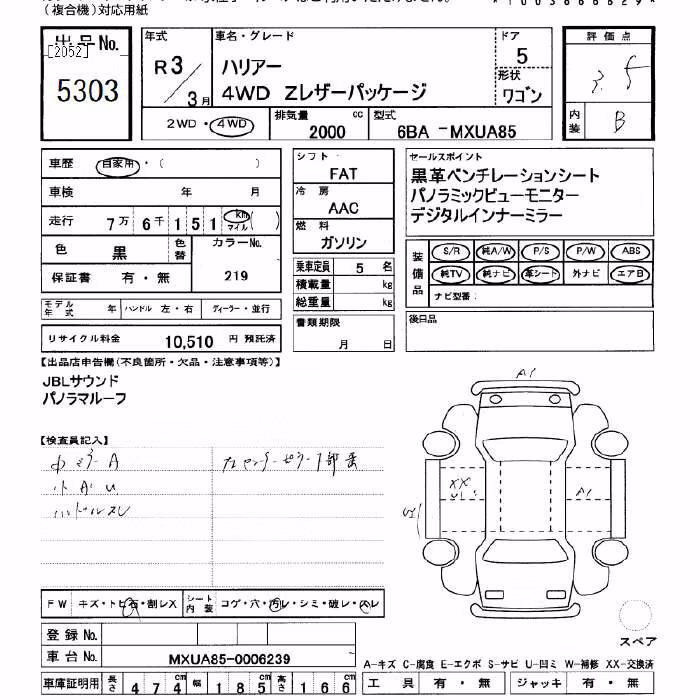 （複合機）対応用紙
出品No.
[2052]
5303
年式
R3
3月
車名・グレード
ハリアー
4WD Zレザーパッケージ
ドア
5
形状
ワゴン
評価点
3.5
内装
B
2WD・4WD
排気量 cc
2000
型式
6BA -MXUA85
車歴 自家用・( )
車検 年 月
走行 7万6千151 km マイル ( )
色 黒 色替
カラーNo.
219
保証書 有・無
モデル年式 年 ハンドル 左・右 ディーラー・並行
リサイクル料金 10,510 円 預託済
シフト
FAT
冷房
AAC
燃料
ガソリン
乗車定員 5 名
積載量 kg
総重量 kg
書類期限
月 日
セールスポイント
黒革ベンチレーションシート
パノラミックビューモニター
デジタルインナーミラー
装備品
S/R 純A/W P/S P/W ABS
純TV 純ナビ 革シート 外ナビ エアB
ナビ型番:
後日品
【出品店申告欄(不良箇所・欠品・注意事項等)】
JBLサウンド
パノラマルーフ
【検査員記入】
小A U
ハンドルスレ
FW キズ・トビ石・割レX
シート内装 コゲ・穴・汚レ・シミ・破レ・スレ
登録No.
車台No. MXUA85-0006239
車庫証明用 長さ 474cm 幅 185cm 高さ 166cm
A1
XX
U1
A1
U1
スペア
A-キズ C-腐食 E-エクボ S-サビ U-凹ミ W-補修 XX-交換済
工具 有・無 ジャッキ 有・無